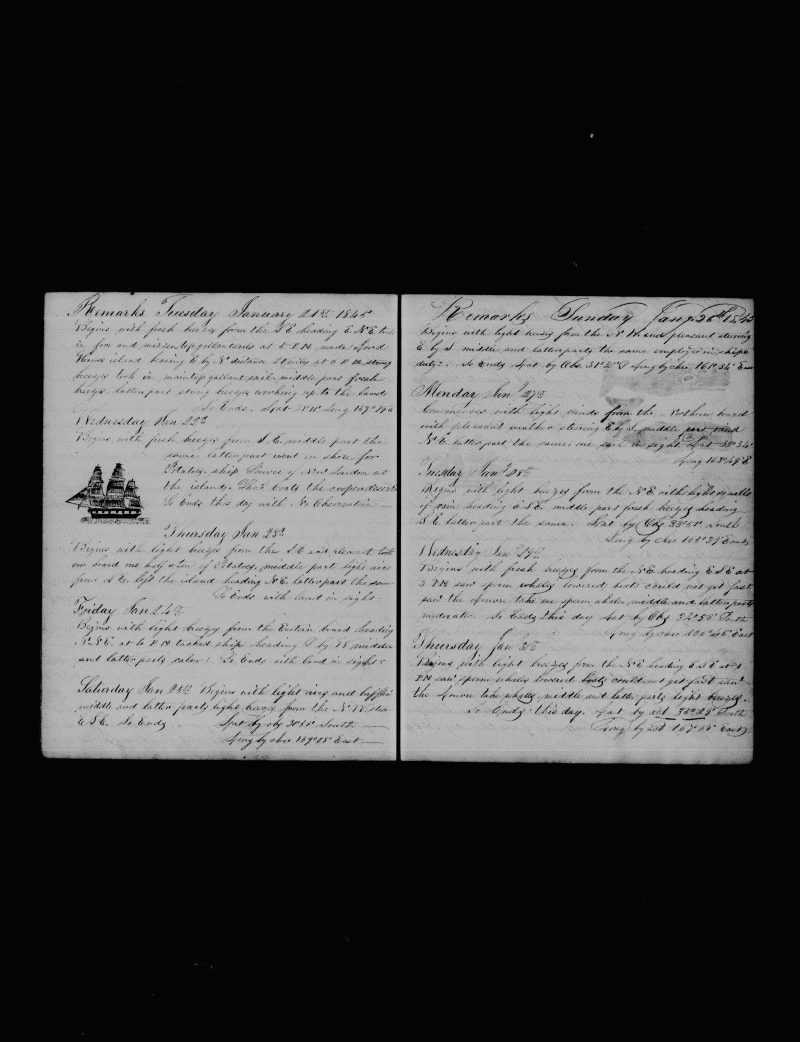 Remarks Tuesday January 21st 1845
Begins with fresh breezes from the S.E heading E.N.E took
in fore and mizzen topgallantsails at 5 P.M. made Lord
Howes island bearing E by N distance 20 miles at 8 P.M. strong
breezes took in maintopgallantsail middle part fresh
breezes latter part strong breezes working up to the land
So Ends. Lat Long 159
Wednesday Jan 22nd
Begins with fresh breezes from S.E. middle part the
same latter part went in shore for
Potatoes. ship of New London at
the island. Thos Coats the cooper deserted
So Ends this day with No Observation
Thursday Jan 23d
Begins with light breezes from the S.E and pleasant took
on board one half a ton of Potatoes, middle part light airs
from left the island heading N.E. latter part the same
So Ends with land in sight
Friday Jan 24th
Begins with light breezes from the Eastern board heading
N.N.E. at 6 P.M tacked ship heading S by W middle
and latter parts calm: So Ends with land in sight
Saturday Jan 25th Begins with light airs and baffling
middle and latter parts light breezes from the N.W. steer
E.S.E. So Ends Lat by obs South
Long by chro 159° East
Remarks Sunday Jany 26th 1845
Begins with light breezes from the N.W. and pleasant steering
E. by S. middle and latter parts the same employed in ships
duty: So Ends Lat by Obs. Long by chro East
Monday Jan 27th
Commences with light winds from the Northern board
with pleasant weather steering E by S. middle part wind
N.E. latter part the same: one sail in sight Lat
Long 163° E
Tuesday Jan 28th
Begins with light breezes from the N.E with light squalls
of rain heading E.S.E. middle part fresh breezes heading
S.E. latter part the same. Lat by Obs South
Long by chro East
Wednesday Jan 29th
Begins with fresh breezes from the N.E. heading E.S.E at
3 P.M saw sperm whales lowered but could not get fast
saw the take one sperm whale. middle and latter parts
moderate So Ends this day Lat by Obs South
Long by chro East
Thursday Jan 30th
Begins with light breezes from the N.E heading E.S.E at
P.M saw sperm whales lowered boats could not get fast saw
the take whales, middle and latter parts light breezes.
So Ends this day. Lat by act South
Long by act 167° East